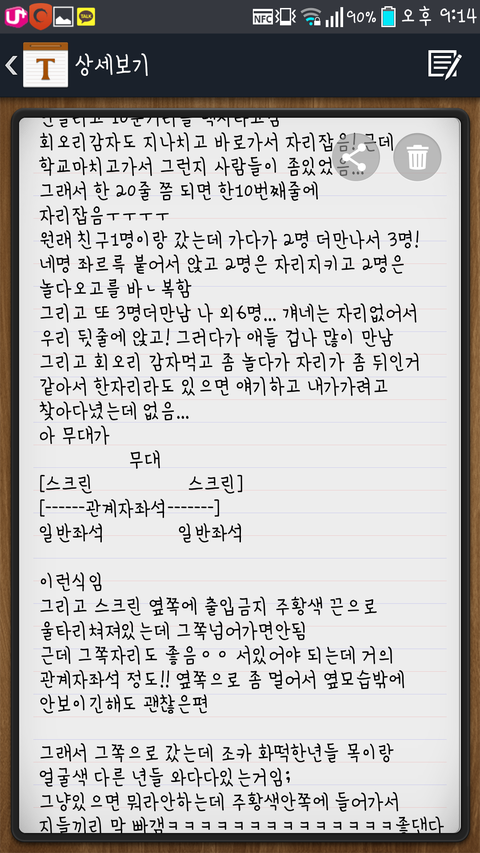 U+
TALK
NFC
90%
오후 9:14
T
상세보기
회오리감자도 지나치고 바로가서 자리잡음! 근데
학교마치고가서 그런지 사람들이 좀있었음...
그래서 한 20줄 쯤 되면 한10번째줄에
자리잡음ㅜㅜㅜㅜ
원래 친구1명이랑 갔는데 가다가 2명 더만나서 3명!
네명 좌르륵 붙어서 앉고 2명은 자리지키고 2명은
놀다오고를 바ㄴ복함
그리고 또 3명더만남 나 외6명... 걔네는 자리없어서
우리 뒷줄에 앉고! 그러다가 애들 겁나 많이 만남
그리고 회오리 감자먹고 좀 놀다가 자리가 좀 뒤인거
같아서 한자리라도 있으면 얘기하고 내가가려고
찾아다녔는데 없음...
아 무대가
무대
[스크린 스크린]
[------관계자좌석-------]
일반좌석 일반좌석
이런식임
그리고 스크린 옆쪽에 출입금지 주황색 끈으로
울타리쳐져있는데 그쪽넘어가면안됨
근데 그쪽자리도 좋음ㅇㅇ 서있어야 되는데 거의
관계자좌석 정도!! 옆쪽으로 좀 멀어서 옆모습밖에
안보이긴해도 괜찮은편
그래서 그쪽으로 갔는데 조카 화떡한년들 목이랑
얼굴색 다른 년들 와다다있는거임;
그냥있으면 뭐라안하는데 주황색안쪽에 들어가서
지들끼리 막 빠갬ㅋㅋㅋㅋㅋㅋㅋㅋㅋㅋㅋㅋㅋㅋㅋ졸댄다